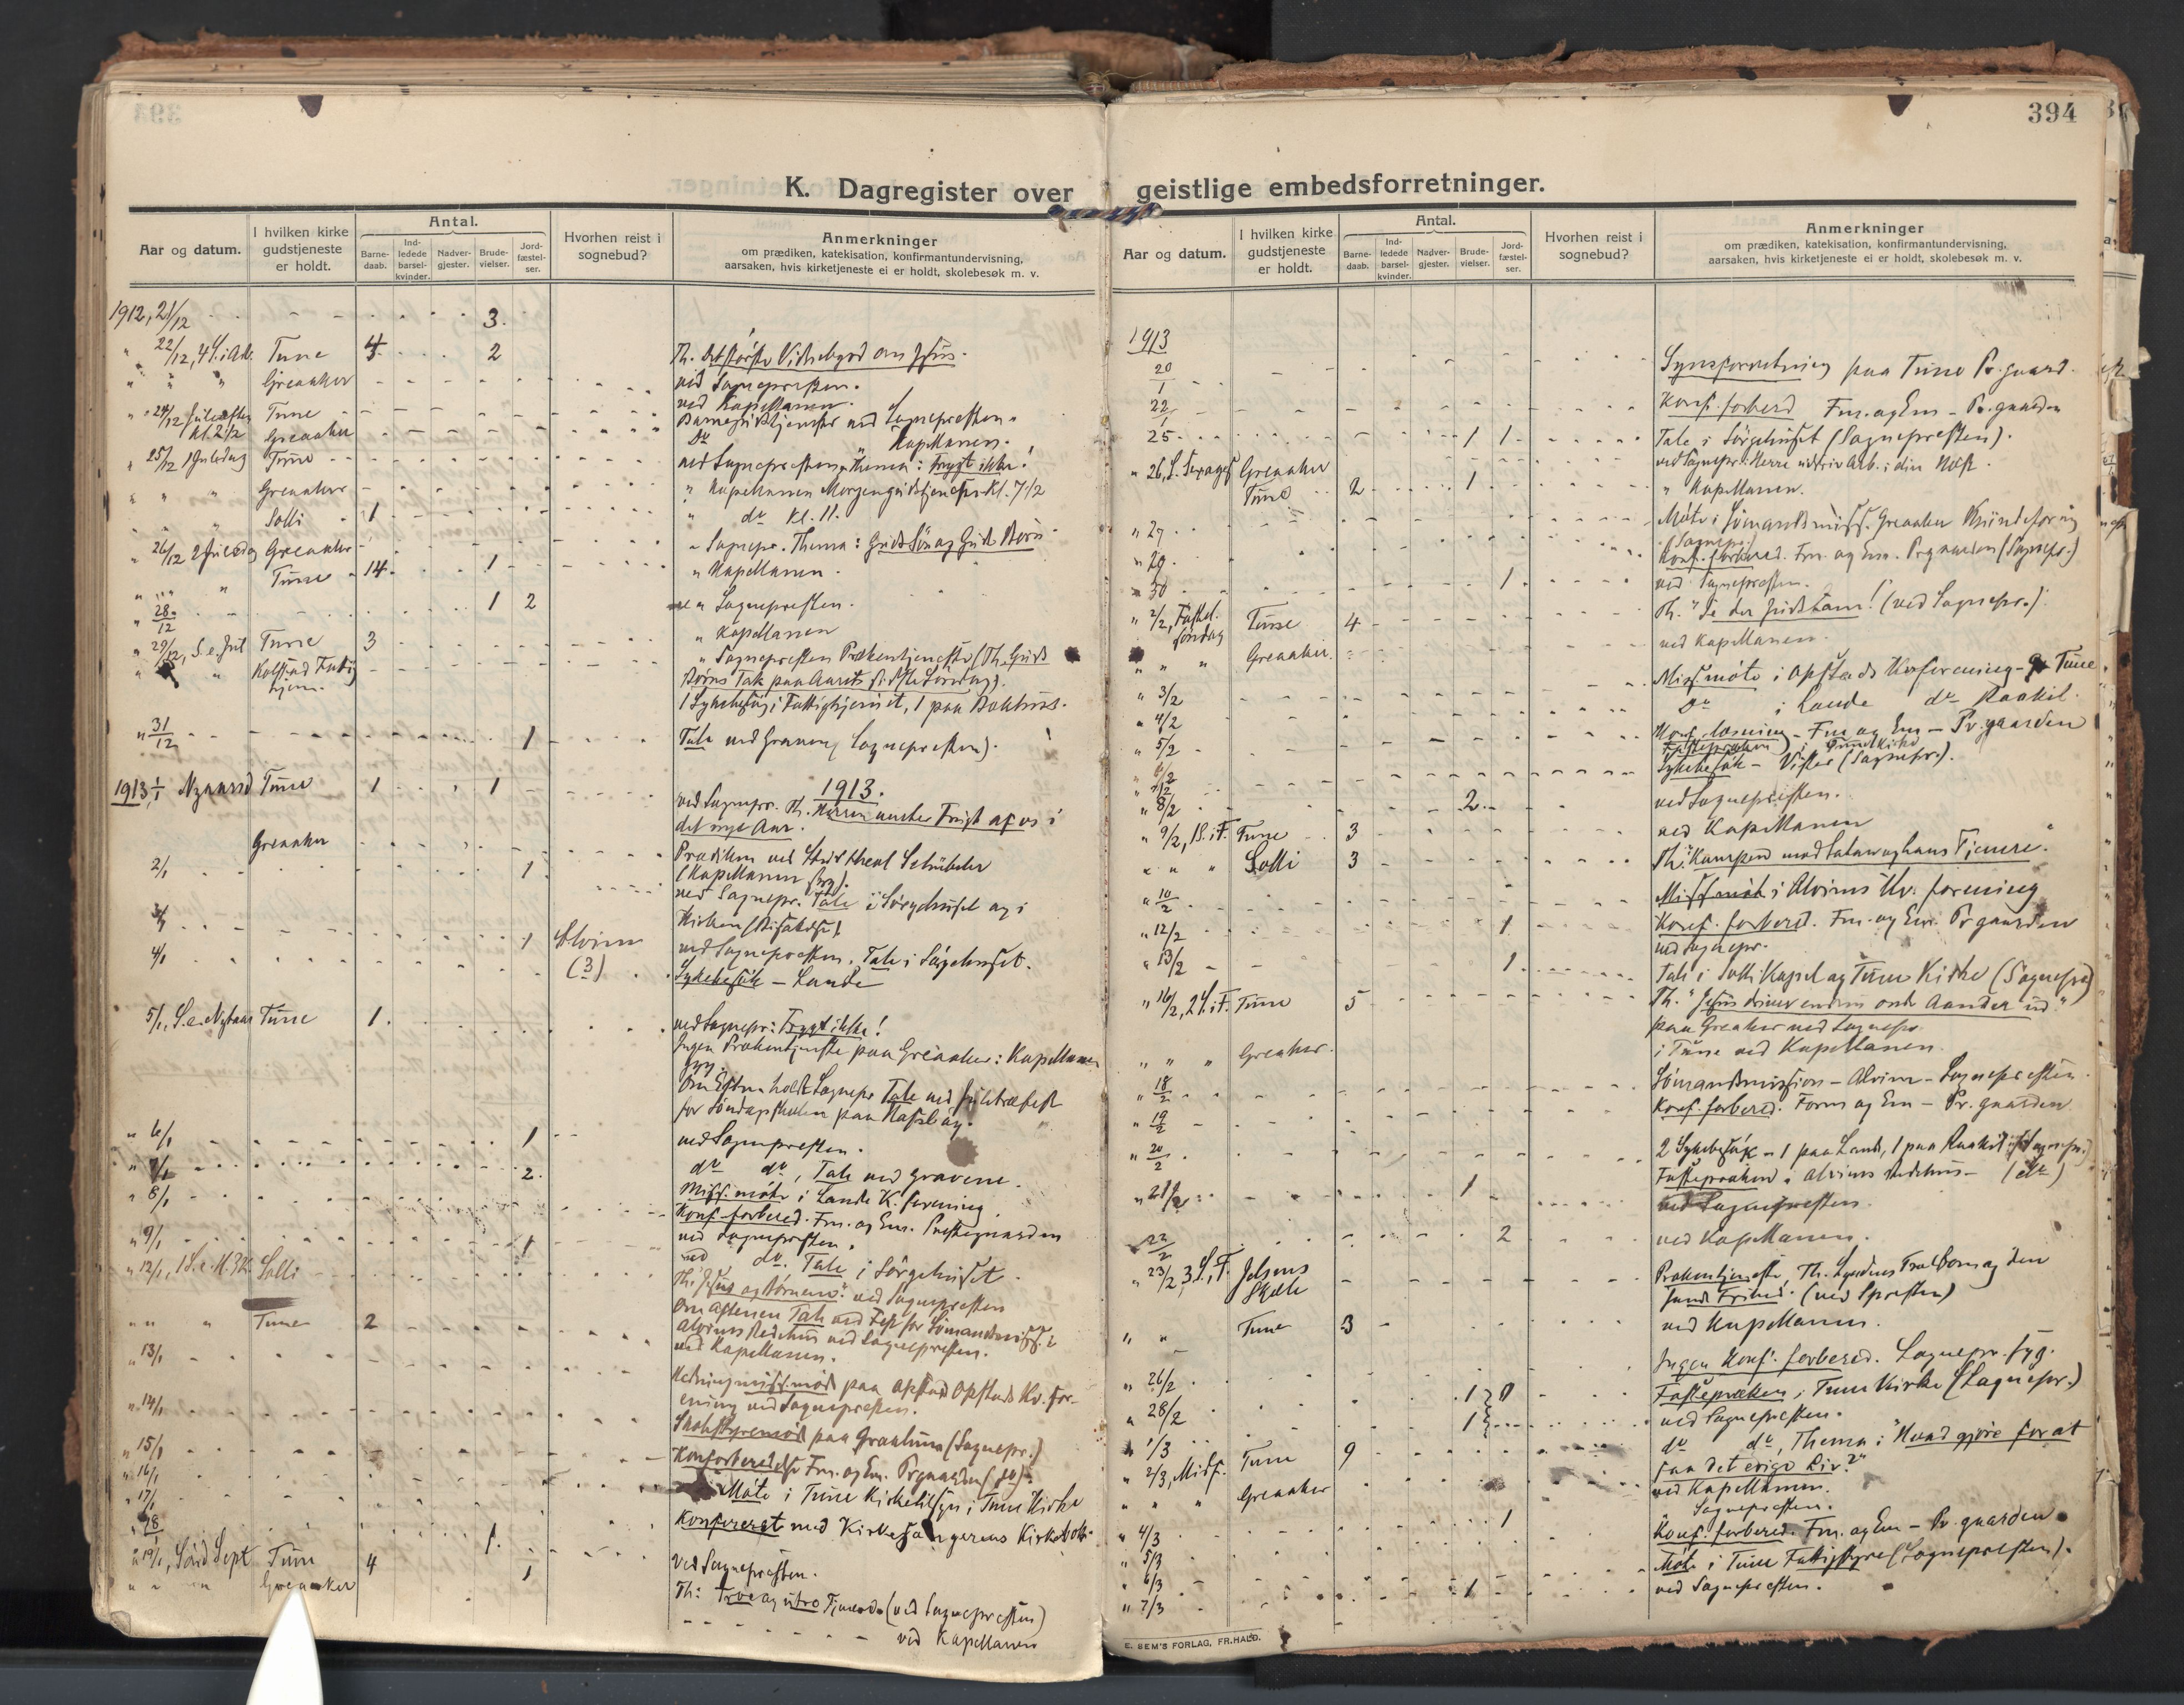 394
K. Dagregister over geistlige embedsforretninger.
Aar og datum.
I hvilken kirke gudstjeneste er holdt.
Antal.
Barne-daab.
Ind-ledede barsel-kvinder.
Nadver-gjester.
Brude-vielser.
Jord-fæstel-ser.
Hvorhen reist i sognebud?
Anmerkninger
om prædiken, katekisation, konfirmantundervisning,
aarsaken, hvis kirketjeneste ei er holdt, skolebesøk m. v.
1912, 21/12 3.
" 22/12, 4 S. i Adv. Tune 4 2 Th. Det største Vidnesbyrd om Jesus.
ved Sognepresten.
" " " Greaaker ved Kapellanen.
" 24/12 Juleaften Tune Barnegudstjeneste ved Sognepresten.
Kl. 2 1/2 Greaaker Do " Kapellanen.
" 25/12 1 Juledag Tune ved Sognepresten. Thema: Frygt ikke!
" " " Greaaker " Kapellanen Morgengudstjeneste Kl. 7 1/2
" " Solli 1 " do Kl. 11.
" 26/12 2 Juledag Greaaker " Sognepr. Thema: Guds Søn og Guds Børn
" " " Tune 14 1 " Kapellanen.
" 28/12 1 2 " Sognepresten.
" 29/12, S. e. Jul Tune 3 " Kapellanen
" " Kolstad Fattighjem. " Sognepresten Prækentjeneste (Th. Guds
Børns Tak paa Aarets sidste Søndag).
1 Sykebesøg i Fattighjemmet, 1 paa Bakhus.
" 31/12 1 Tale ved Graven (Sognepresten).
1913.
1913 1/1 Nyaarsd Tune 1 1 ved Sognepr. Th. Herren venter Frugt af os i
det nye Aar.
Greaaker Prædiken ved Stud. theol. Schübeler
(Kapellanen syg).
2/1 1 ved Sognepr. Tale i Sørgehuset og i
Kirken
3/1 1 Alvim ved Sognepresten. Tale i Sørgehuset.
4/1 (3) Sykebesøk - Lande
5/1, S. e. Nytaar Tune 1 ved Sognepr: Frygt ikke!
Ingen Prækentjeneste paa Greaaker: Kapellanen
syg.
Om Efterm. holdt Sognepr Tale ved Juletræfest
for Søndagsskolen paa Hafslög.
" 6/1 1 ved Sognepresten.
" 7/1 2. do do, Tale ved Gravene.
" 8/1 Miss. møte i Lande K. forening.
Konf. forbered. Fm. og Em. Prestegaarden
" 9/1 1 ved Sognepresten.
ved do. Tale i Sørgehuset.
" 12/1, 1 S. e. H. 3 K. Solli Th: Jesus og Børnene. ved Sognepresten
Om Aftenen Tale ved Fest for Sømandsmiss. i
Alvims Bedehus ved Sognepresten.
" " " Tune 2 ved Kapellanen.
" 13/1 Hedningmiss. møde paa Opstad Opstads Kv. for-
ening ved Sognepresten.
" 14/1 Skolestyremøde paa Graalum (Sognepr.)
" 15/1 Konforberedelse Fm. og Em. Prgaarden (do).
" 16/1 Møte i Tune Kirketilsyn i Tune Kirke
" 17/1 Konfereret med Kirkesangerens Kirkebok.
" 18/1 1. ved Sognepresten.
" 19/1, Sönd Sept Tune 4 1 Th: Troe og utro Tjenere (ved Sognepresten)
" " " Greaaker ved Kapellanen
394
Aar og datum.
I hvilken kirke gudstjeneste er holdt.
Antal.
Barne-daab.
Ind-ledede barsel-kvinder.
Nadver-gjester.
Brude-vielser.
Jord-fæstel-ser.
Hvorhen reist i sognebud?
Anmerkninger
om prædiken, katekisation, konfirmantundervisning,
aarsaken, hvis kirketjeneste ei er holdt, skolebesøk m. v.
1913
20/1 Synsforretning paa Tune Pr. gaard.
22/1 Konf. forbered Fm. og Em - Pr. gaarden
25 1 1 Tale i Sørgehuset (Sognepresten).
" 26, S. Sexages Greaaker ved Sognepr: Herre utdriv Arb. i din Høst.
Tune 2 1 " Kapellanen.
" 27 Møte i Sømandsmiss. Greaaker Kvindeforening
(Sognepr.)
" 29 Konf. forbered. Fm. og Em. Prgaarden (Sognepr.)
" 30 1 ved Sognepresten.
" 2/2, Fastel. søndag Tune 4 Th. "Se der Guds Lam! (ved Sognepr.)
" " " Greaaker ved Kapellanen.
" 3/2 Miss. møte i Opstads Kv. forening - Tune
" 4/2 Do i Lande do Raakil.
" 5/2 Konf. læsning - Fm. og Em - Pr. gaarden
" 6/2 Fastepræken i Tune Kirke
" 7/2 Sykebesøk - Vister (Sognepr.).
" 8/2 2 ved Sognepresten.
" 9/2, 1 S. i F. Tune 3 ved Kapellanen
" " " Solli 3 Th: Kampen mod Satan og hans Tjenere.
" 10/2 Miss. møte i Alvims Kv. forening
" 12/2 1 Konf. forbered. Fm. og Em. Prgaarden
ved Sognepr.
" 13/2 1 Tale i Solli Kapel og Tune Kirke (Sognepr)
" 16/2, 2 S. i F. Tune 5 Th. "Jesus driver endnu onde Aander ud."
paa Greaker ved Sognepr
" " " Greaker i Tune ved Kapellanen.
" 18/2 Sømandsmission - Alvim - Sognepresten.
" 19/2 Konf. forbered. Form og Em - Pr. gaarden
" 20/2 2 Sykebesøk - 1 paa Lande, 1 paa Raakil
Fastepræken i Alvims Bedehus - (do)
" 21/2 1 ved Sognepresten.
" 22/2 2 ved Kapellanen.
" 23/2 3 S. i F. Jelsnes Skole Prækentjeneste, Th. Syndens Trældom og den
sande Frihed. (ved Spresten)
" " Tune 3 ved Kapellanen.
" 26/2 Ingen Konf. forbered. Sognepr. syg.
Fastepræken i Tune Kirke (Sognepr.)
" 28/2 1 ved Sognepresten.
" 1/3 1 do do, Thema: "Hvad gjøre for at
" 2/3, Midf. Tune 9 faa det evige Liv?"
" " " Greaaker ved Kapellanen.
" 4/3 1 " Sognepresten.
" 5/3 Konf. forbered. Fm. og Em - Pr. gaarden
" 6/3 Møte i Tune Fattigstyre (Sognepresten).
" 7/3 1 ved Sognepresten.
E. SEM'S FORLAG, FR.HALD.